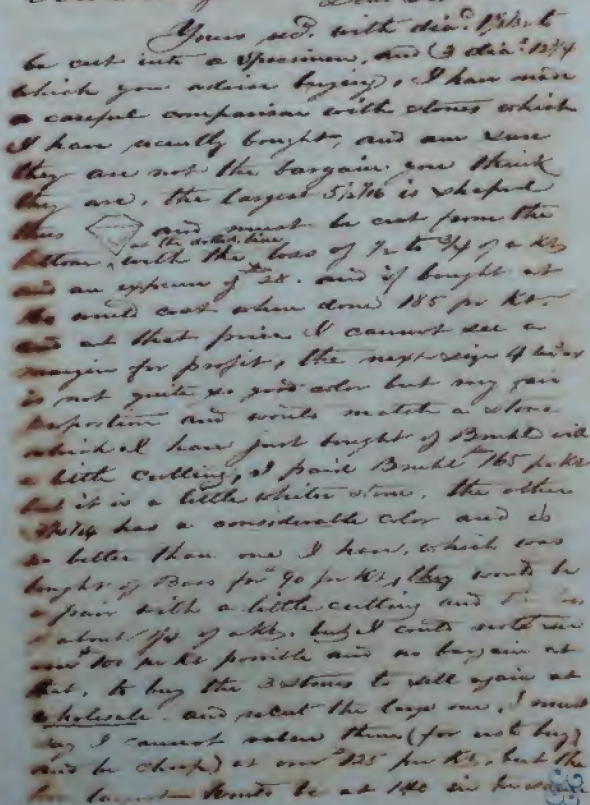 Yours recd. with diad.
be cut into a Specimen, and (3 diad. 12¾
which you advise buying, I have made
a careful comparison with stones which
I have recently bought, and am sure
they are not the bargain you think
they are, the largest is shaped
thus and must be cut from the
as the dotted line
bottom, with the loss of ½ to ¾ of a Kt,
and an expense of and if bought at
would cost when done 185 pr Kt.
and at that price I cannot see a
margin for profit, the next size
is not quite so good color but very fair
proportion and would match a stone
which I have just bought of with
a little cutting, I paid 165 pr Kt
but it is a little whiter stone. the other
has a considerable color and is
no better than one I have, which was
bought of for $90 pr Kt, they would be
a pair with a little cutting and
about ¼ of a Kt. but I could not see
100 pr Kt possible and no bargain at
that, to buy the 3 stones to sell again at
wholesale. and recut the large one, I must
say I cannot value them (for us to buy
and be cheap) at over $125 pr Kt, but the
would be at 140